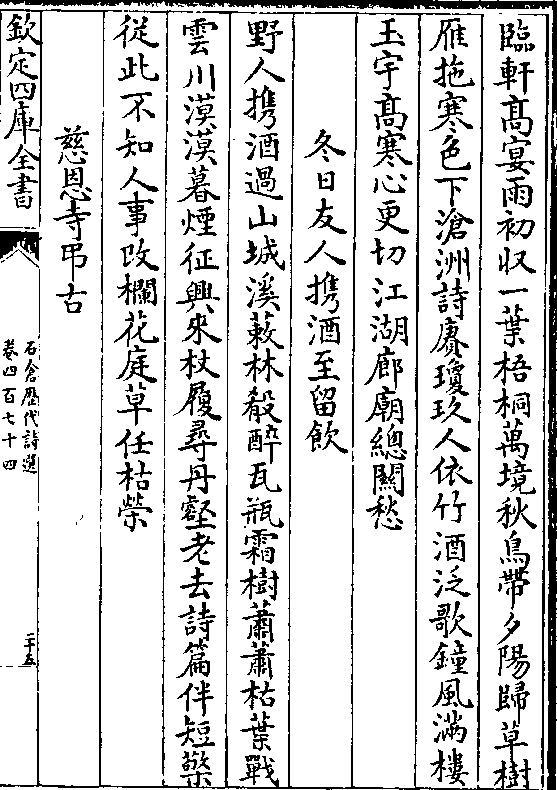 臨軒髙宴雨初収一葉梧桐萬境秋鳥帶夕陽歸草樹
雁拖寒色下滄洲詩賡瓊玖人依竹酒泛歌鐘風滿樓
玉宇髙寒心更切江湖廊廟總關愁
冬日友人携酒至留飲
野人携酒過山城溪蔌林殽醉瓦瓶霜樹蕭蕭枯葉戰
雲川漠漠暮煙征興來杖履尋丹壑老去詩篇伴短檠
從此不知人事改欄花庭草任枯榮
慈恩寺弔古
欽定四庫全書
石倉歷代詩選
卷四百七十四
二十五